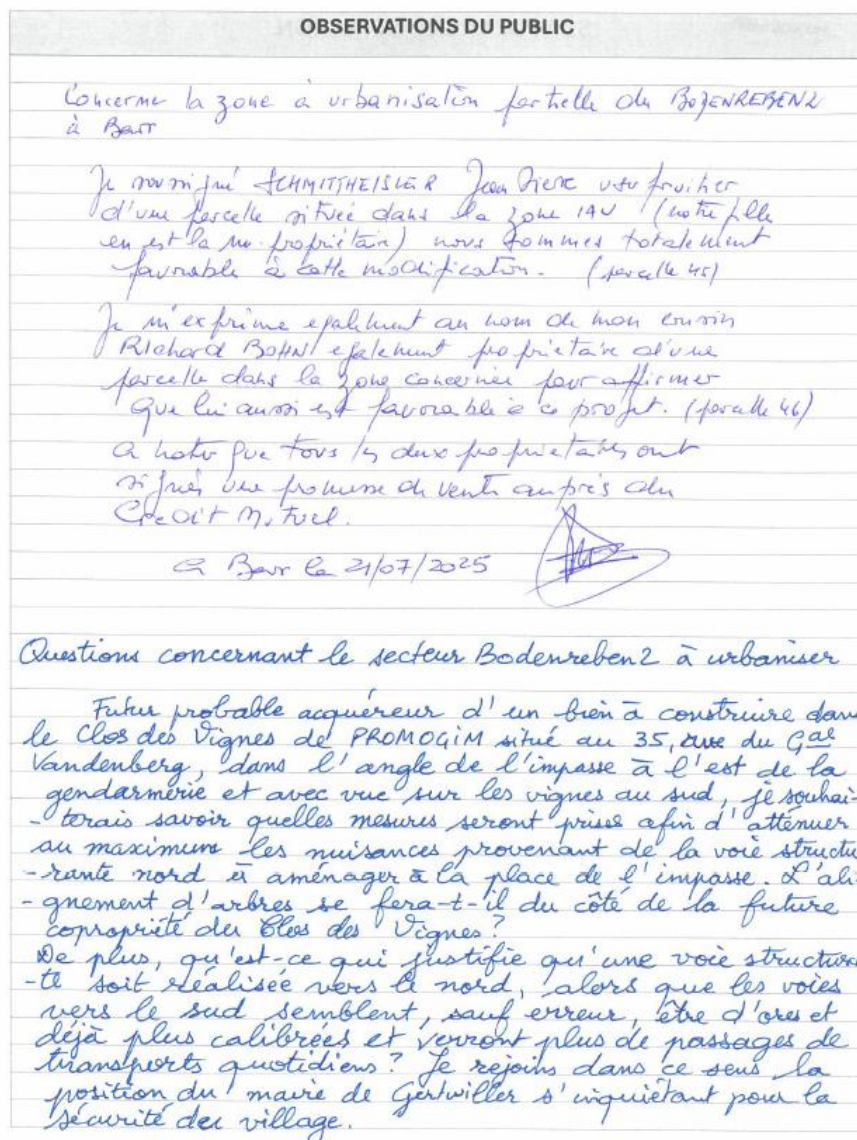 OBSERVATIONS DU PUBLIC
Concerne la zone à urbanisation partielle du BOZENREBEN2
à Barr
Je soussigné SCHMITTHEISLER Jean Pierre usufruitier
d'une parcelle située dans la zone IAU (notre fille
en est la nu-propriétaire) nous sommes totalement
favorable à cette modification. (parcelle 45)
Je m'exprime egalement au nom de mon cousin
Richard BOHN egalement propriétaire d'une
parcelle dans la zone concernée pour affirmer
que lui aussi est favorable à ce projet. (parcelle 46)
A noter que tous les deux propriétaires ont
signés une promesse de vente auprès du
Crédit Mutuel.
A Barr le 21/07/2025
Questions concernant le secteur Bodenreben2 à urbaniser
Futur probable acquéreur d'un bien à construire dans
le Clos des Vignes de PROMOGIM situé au 35, rue du Gal
Vandenberg, dans l'angle de l'impasse à l'est de la
gendarmerie et avec vue sur les vignes au sud, je souhai-
-terais savoir quelles mesures seront prises afin d'atténuer
au maximum les nuisances provenant de la voie structu
-rante nord à aménager à la place de l'impasse. L'ali
-gnement d'arbres se fera-t-il du côté de la future
copropriété du Clos des Vignes ?
De plus, qu'est-ce qui justifie qu'une voie structuran
-te soit réalisée vers le nord, alors que les voies
vers le sud semblent, sauf erreur, être d'ores et
déjà plus calibrées et verront plus de passages de
transports quotidiens ? Je rejoins dans ce sens la
position du maire de Gertwiller s'inquiétant pour la
sécurité du village.